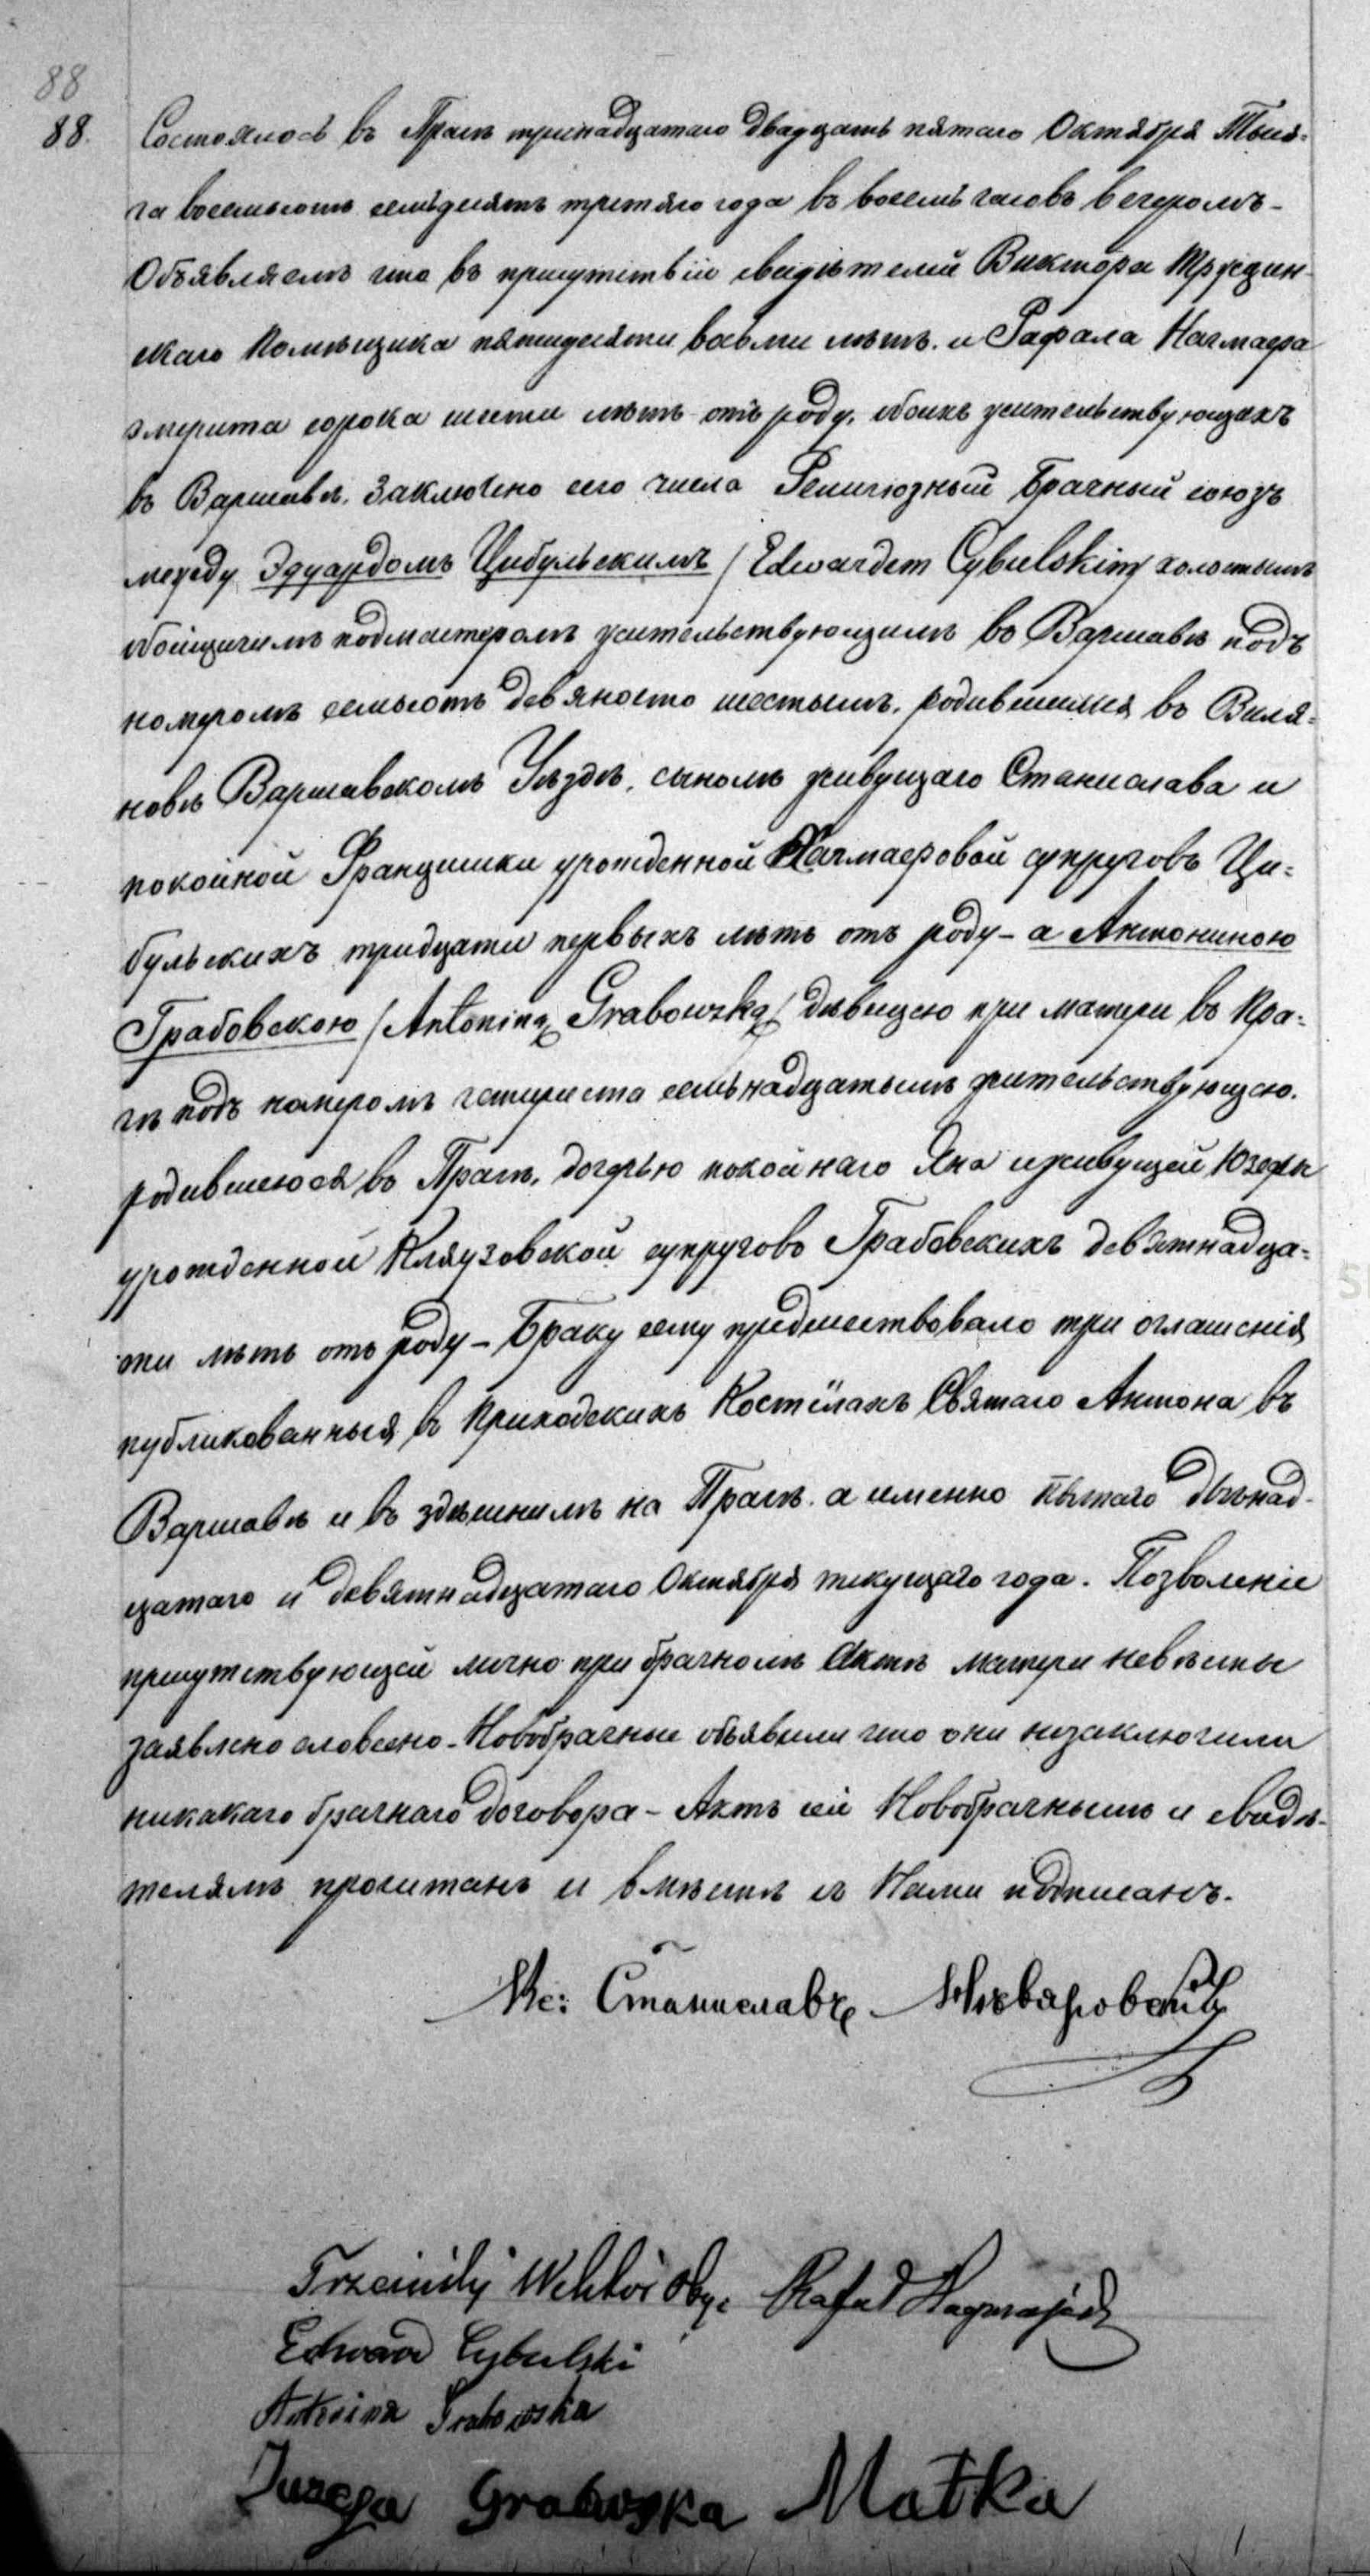 88
88. Состоялось въ Прагѣ тринадцатаго двадцать пятаго Октября Тыся-
ча восемьсотъ семьдесятъ третяго года въ восемь часовъ вечеромъ -
Объявляемъ что въ присутствіи свидѣтелей Виктора
скаго Помѣщика пятидесяти восьми лѣтъ. и Рафала Нагмаера
эмерита сорока шести лѣтъ отъ роду, обоихъ жительствующихъ
въ Варшавѣ. Заключено сего числа Религіозный Брачный союзъ
между Эдуардомъ Цибульскимъ / Edwardem Cybulskim / холостымъ
обойщичимъ подмастеромъ жительствующимъ въ Варшавѣ подъ
номеромъ семьсотъ девяносто шестымъ, родившимся въ Виля-
новѣ Варшавскомъ Уѣздѣ, сыномъ живущаго Станислава и
покойной Францишки урожденной Нагмаеровой супруговъ Ци-
бульскихъ тридцати первыхъ лѣтъ отъ роду - а Антониною
Грабовскою / Antoniną Grabowską / дѣвицею при матери въ Пра-
гѣ подъ номеромъ четыриста семьнадцатымъ жительствующею.
родившеюся въ Прагѣ, дочерью покойнаго Яна и живущей Юзефы
урожденной Кляузовской супруговъ Грабовскихъ девятнадца-
ти лѣтъ отъ роду - Браку сему предшествовало три оглашенія
публикованныя въ Приходскихъ Костёлахъ Святаго Антона въ
Варшавѣ и въ здѣшнимъ на Прагѣ. а именно пятаго двѣнад-
цатаго и девятнадцатаго Октября текущаго года. Позволеніе
присутствующей лично при брачномъ Актѣ матери невѣсты
заявлено словесно - Новобрачные объявили что они незаключили
никакаго брачнаго договора - Актъ сей Новобрачнымъ и свидѣ-
телямъ прочитанъ и вмѣстѣ съ Нами подписанъ.
Кс: Станиславъ
Rafał Nagmajer
Edward Cybulski
Antonina Grabowska
Juzefa Grabowska Matka